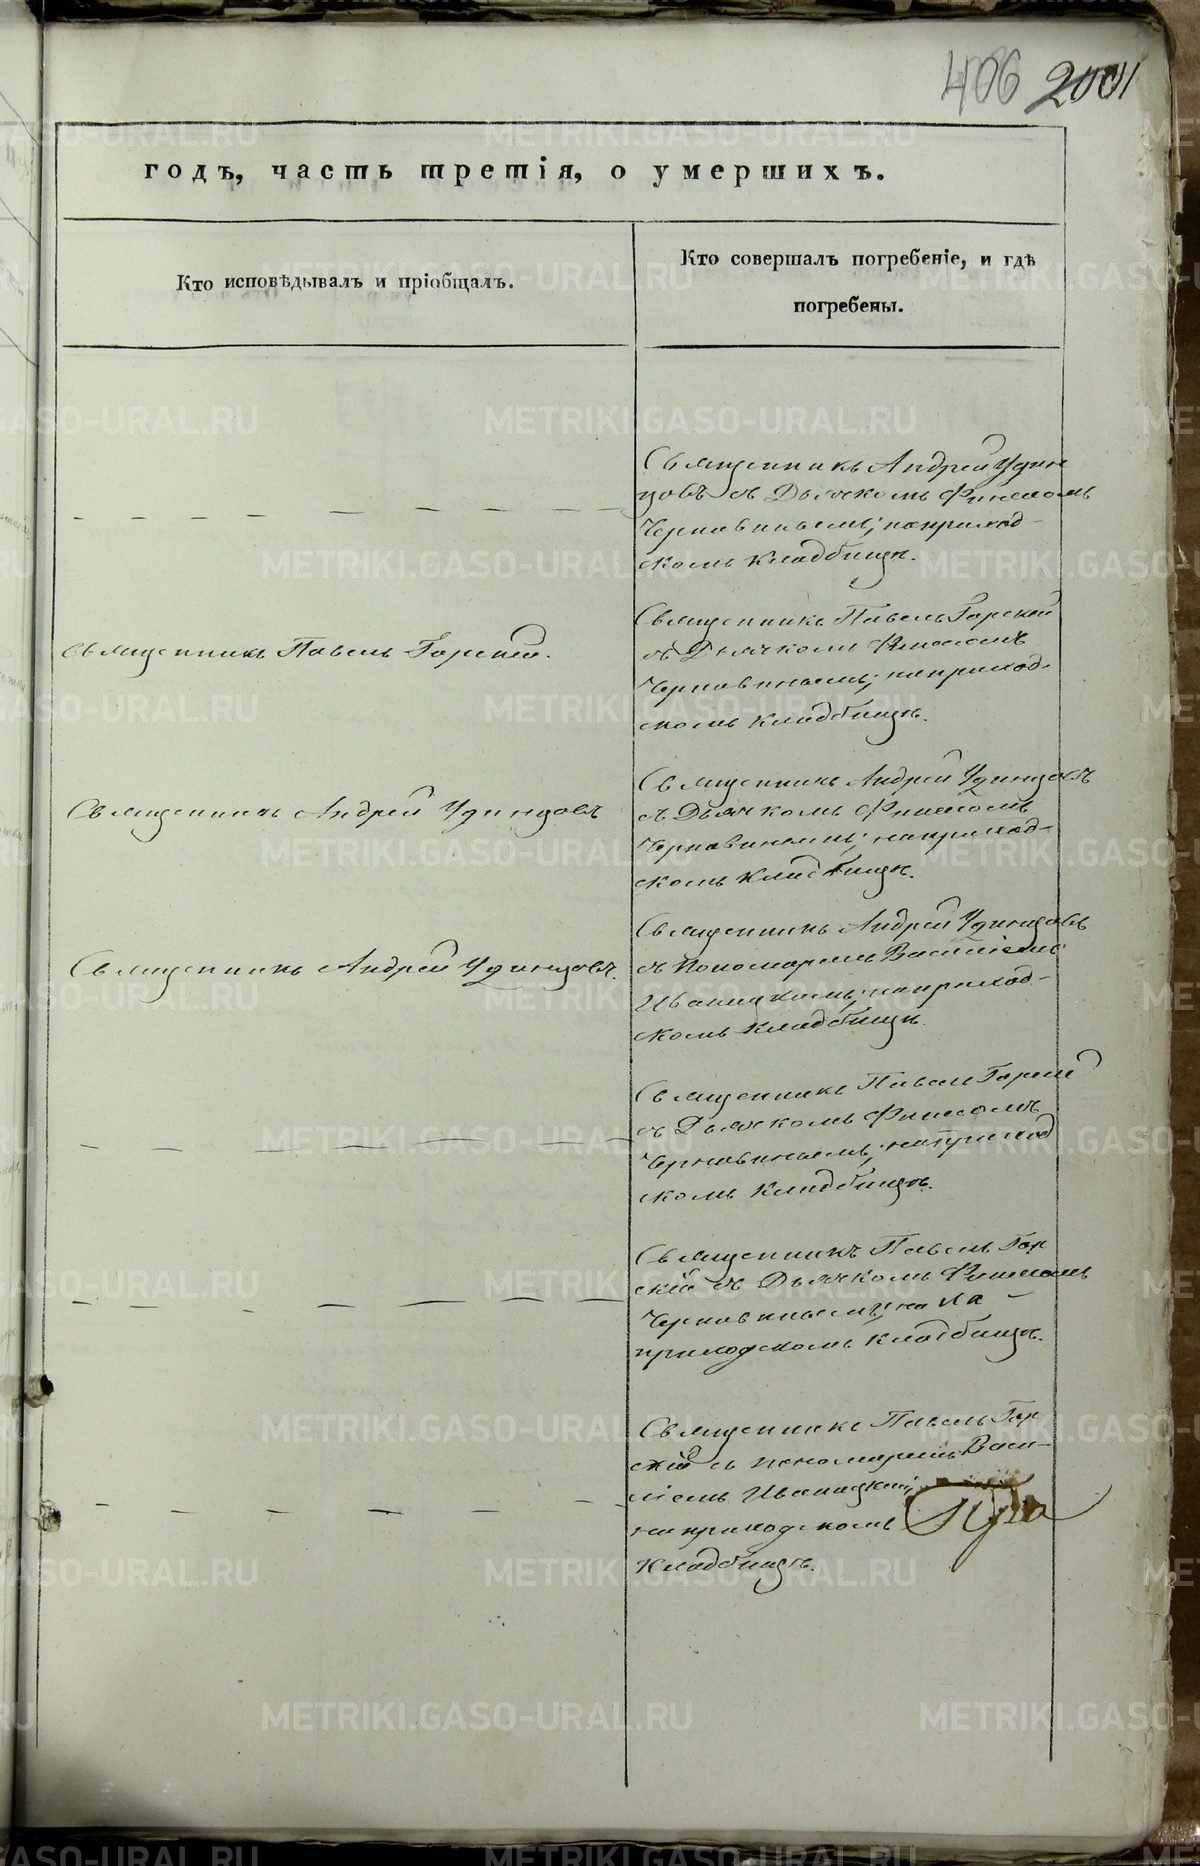 406 2001
годъ, часть третія, о умершихъ.
Кто исповѣдывалъ и пріобщалъ.
Кто совершалъ погребеніе, и гдѣ
погребены.
Священникъ Андрей Удин
цовъ съ Дьячкомъ
на приход-
скомъ кладбищѣ.
Священникъ Павелъ Горскій.
Священникъ Павелъ Горскій
съ Дьячкомъ
на приход-
скомъ кладбищѣ.
Священникъ Андрей Удинцовъ
Священникъ Андрей Удинцовъ
съ Дьячкомъ
на приход-
скомъ кладбищѣ.
Священникъ Андрей Удинцовъ.
Священникъ Андрей Удинцовъ
съ Пономаремъ Василіемъ
Иваницкимъ; на приход-
скомъ кладбищѣ.
Священникъ Павелъ
съ Дьячкомъ
на приход
скомъ кладбищѣ.
Священникъ Павелъ Гор
скій съ Дьячкомъ
на
приходскомъ кладбищѣ.
Священникъ Павелъ Гор
скій съ пономаремъ Васи-
ліемъ Иваницкимъ,
на приходскомъ
кладбищѣ.
METRIKI.GASO-URAL.RU